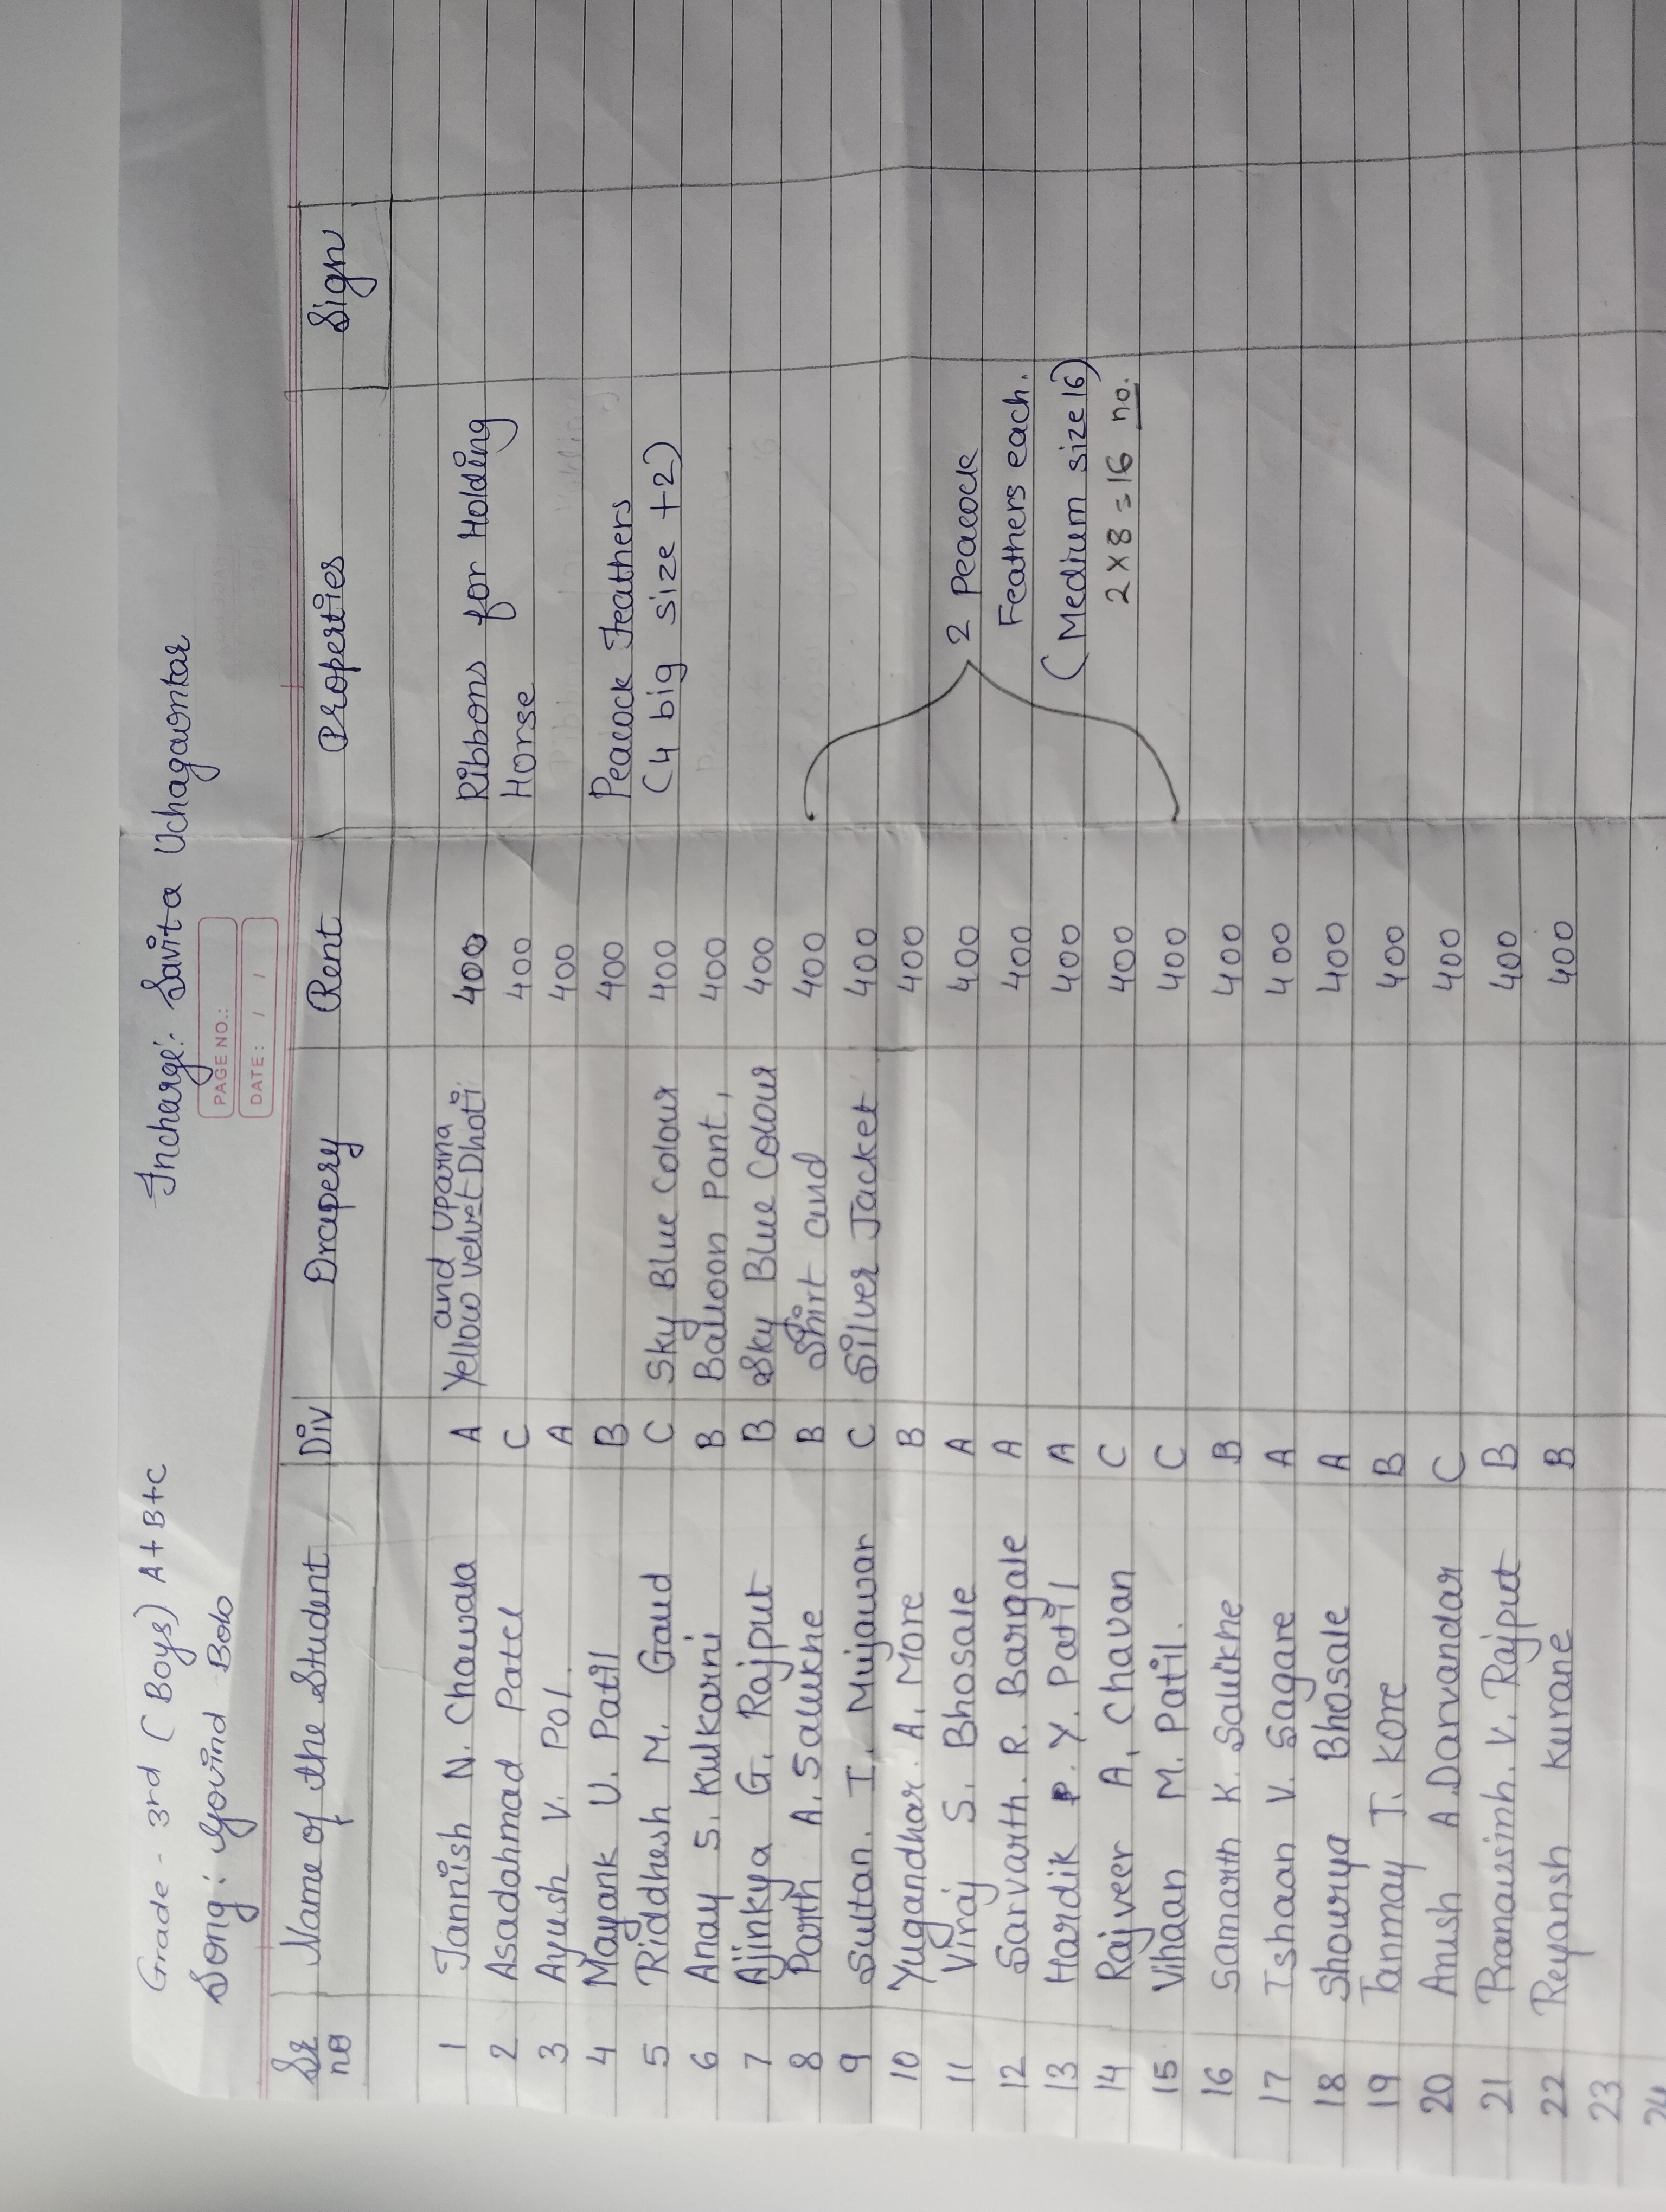 Grade - 3rd (Boys) A+B+C Incharge: Savita Uchagaonkar
Song: Govind Bolo
PAGE NO.:
DATE: / /
Sr no Name of the Student Div Drapery Rent Properties Sign
and uparna
1 Tannish N. Chawala A Yellow velvet Dhoti 400 Ribbons for Holding
2 Asadahmad Patel C 400 Horse
3 Ayush V. Pol. A 400
4 Mayank U. Patil B 400 Peacock Feathers
5 Riddhesh M. Gaud C Sky Blue Colour 400 (4 big size +2)
6 Anay S. Kulkarni B Balloon Pant, 400
7 Ajinkya G. Rajput B Sky Blue Colour 400
8 Parth A. Salukhe B Shirt and 400
9 Sultan. I. Mujawar C Silver Jacket 400
10 Yugandhar. A. More B 400
11 Viraj S. Bhosale A 400 2 Peacock
12 Sarvarth. R. Bargale A 400 Feathers each.
13 Hardik P. Y. Patil A 400 (Medium size 16)
14 Rajveer A. Chavan C 400 2 x 8 = 16 no.
15 Vihaan M. Patil. C 400
16 Samarth K. Salukhe B 400
17 Ishaan V. Sagare A 400
18 Shourya Bhosale A 400
19 Tanmay T. Kore B 400
20 Anush A. Darvandar C 400
21 Pranavsinh. V. Rajput B 400
22 Reyansh Kurane B 400
23
24